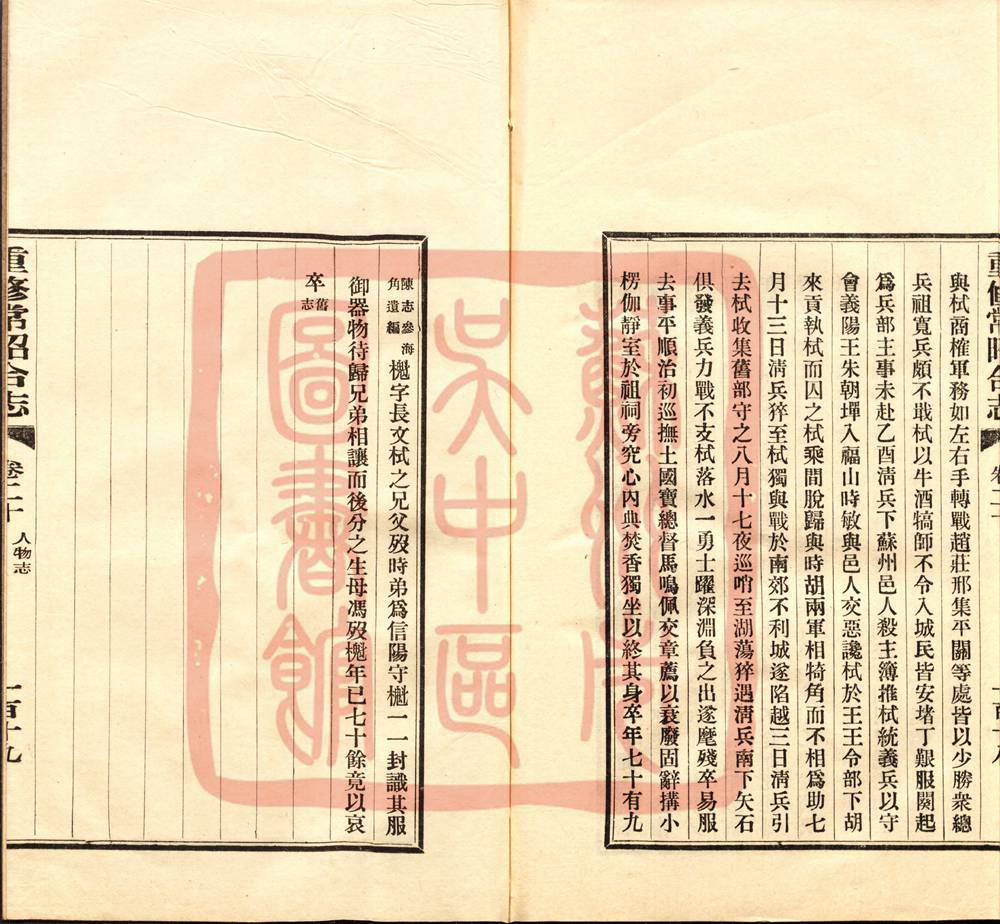 與栻商榷軍務如左右手轉戰趙莊邢集平關等處皆以少勝衆總
兵祖寬兵頗不戢栻以牛酒犒師不令入城民皆安堵丁艱服闋起
爲兵部主事未赴乙酉淸兵下蘇州邑人殺主簿推栻統義兵以守
會義陽王朱朝墠入福山時敏與邑人交惡讒栻於王王令部下胡
來貢執栻而囚之栻乘間脫歸與時胡兩軍相犄角而不相爲助七
月十三日淸兵猝至栻獨與戰於南郊不利城遂陷越三日淸兵引
去栻收集舊部守之八月十七夜巡哨至湖蕩猝遇淸兵南下矢石
俱發義兵力戰不支栻落水一勇士躍深淵負之出遂麾殘卒易服
去事平順治初巡撫土國寶總督馬鳴佩交章薦以衰廢固辭搆小
楞伽靜室於祖祠旁究心內典焚香獨坐以終其身卒年七十有九
陳志參海
角遺編
櫆字長文栻之兄父歿時弟爲信陽守櫆一一封識其服
御器物待歸兄弟相讓而後分之生母馮歿櫆年已七十餘竟以哀
卒
舊
志
重修常昭合志
卷二十
人物志
一百十九
吳中區
圖書館